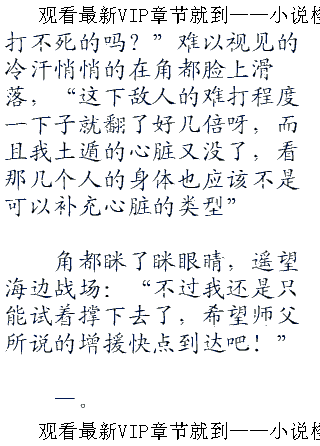 观看最新VIP章节就到——小说桧
打不死的吗？”难以视见的
冷汗悄悄的在角都脸上滑
落，“这下敌人的难打程度
一下子就翻了好几倍呀，而
且我土遁的心脏又没了，看
那几个人的身体也应该不是
可以补充心脏的类型”
角都眯了眯眼睛，遥望
海边战场：“不过我还是只
能试着撑下去了，希望师父
所说的增援快点到达吧！”
一。
观看最新VIP章节就到——小说桧